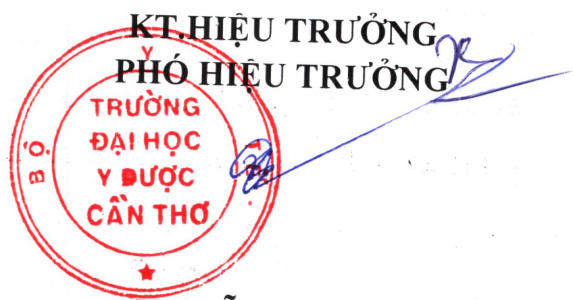 KT.HIỆU TRƯỞNG
PHÓ HIỆU TRƯỞNG
BỘ Y TẾ
TRƯỜNG
ĐẠI HỌC
Y DƯỢC
CẦN THƠ